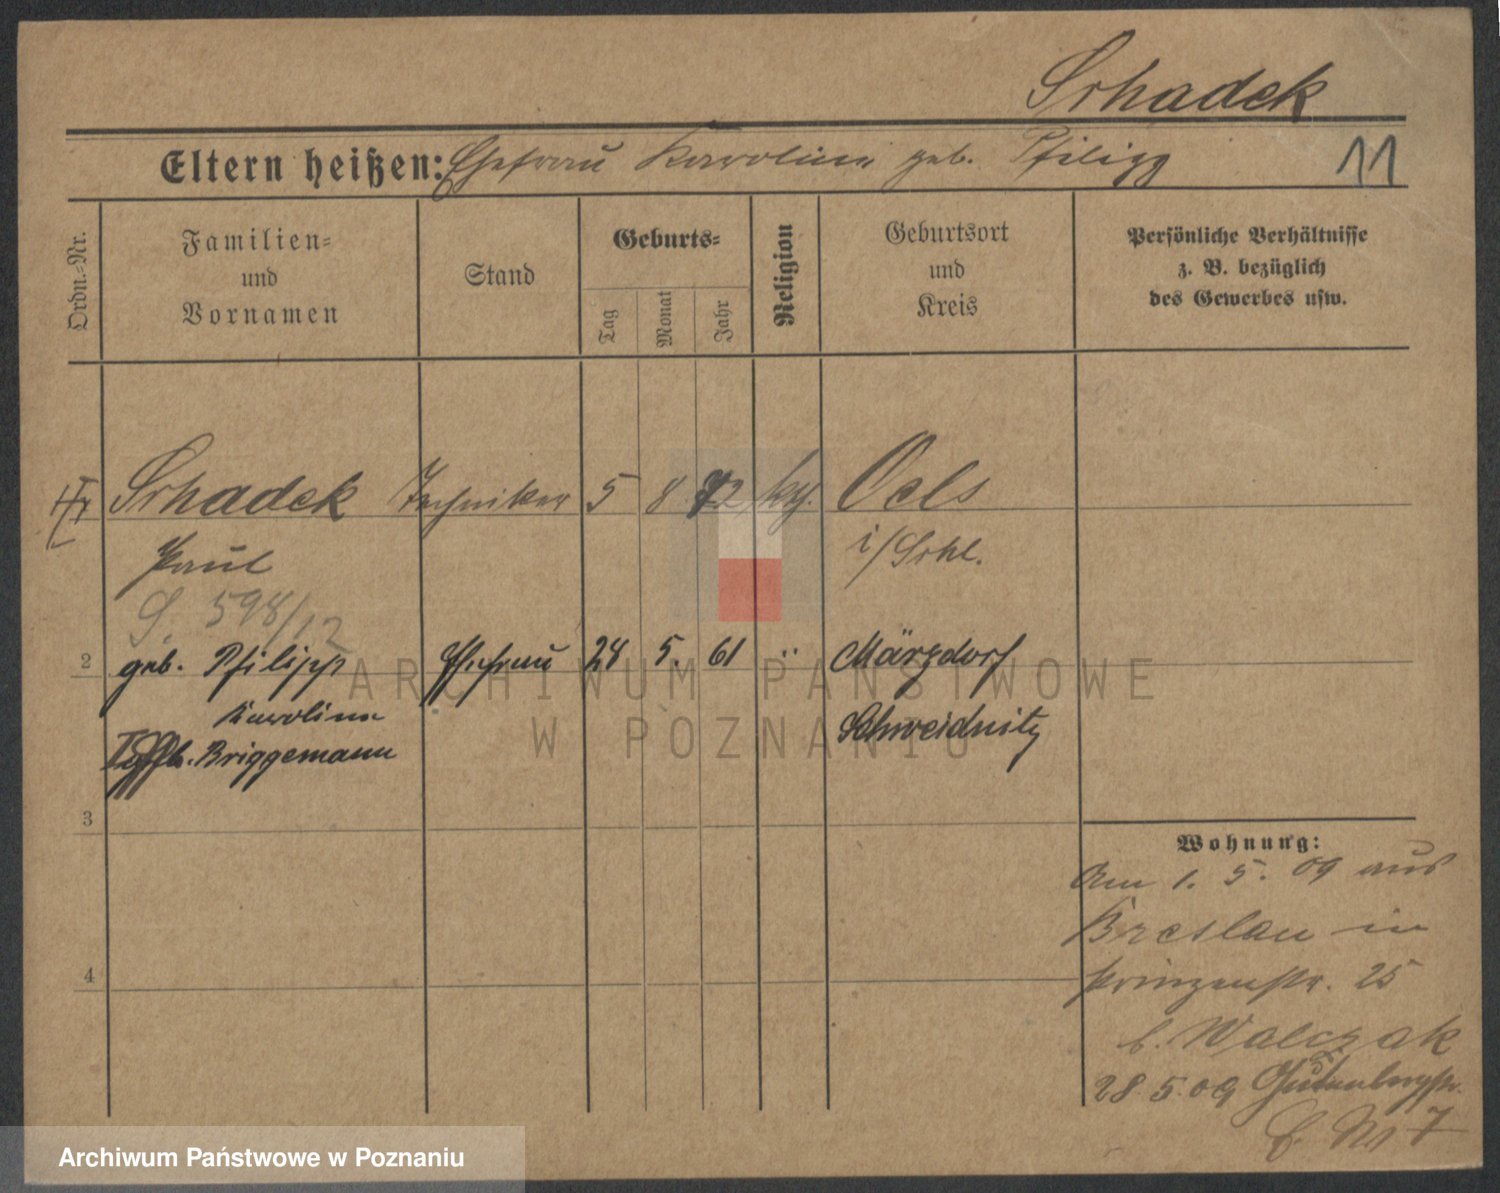 Schadek
Eltern heißen: Ehefrau Karoline geb. Philipp
11
Ordn.-Nr.
Familien-
und
Vornamen
Stand
Geburts-
Tag
Monat
Jahr
Religion
Geburtsort
und
Kreis
Persönliche Verhältnisse
z. B. bezüglich
des Gewerbes usw.
Schadek Techniker 5 8 72 kth. Oels
Paul i/Schl.
S. 598/12
2 geb. Philipp Ehefrau 28 5. 61 " Märzdorf
Karoline Schweidnitz
Briggemann
3
4
Wohnung:
Am 1. 5. 09 aus
Breslau in
Prinzenstr. 25
b. Walczak
28.5.09 Gutenbergstr.
No 7
ARCHIWUM PAŃSTWOWE
W POZNANIU
Archiwum Państwowe w Poznaniu